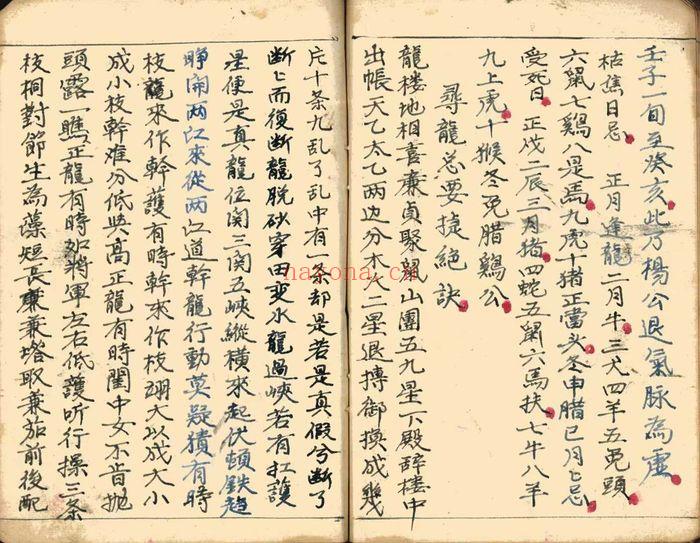 壬子一旬至癸亥此乃楊公退氣脉為虛
枯焦日忌 正月逢龍二月牛三犬四羊五兎頭
六鼠七鷄八是馬九虎十猪正當头冬申腊巳月上忌
受死日 正戊二辰三月猪四蛇五鼠六馬扶七牛八羊
九上虎十猴冬兎腊鷄公
尋龍总要捷絕訣
龍楼地相喜廉貞聚眾山團五九星下殿辞楼中
出帳天乙太乙两边分木火二星退摶御換成幾
片十条九乱了乱中有一条却是若是真假兮断了
断匕而復断龍脱砂穿田変水龍過峡若有扛護
星便是真龍位関三関五峡縱横來起伏頓鉄趋
睁闹两江來從两江道幹龍行動莫疑猜有時
枝龍來作幹護有時幹來作枝翊大以成大小
成小枝幹难分低與高正龍有時閨中女不肯拋
頭露一瞧正龍有時如將軍左右低護听行操三条
枝桐對節生為藻短長蒹蒹塔取蒹茄前後配
nazona.cn